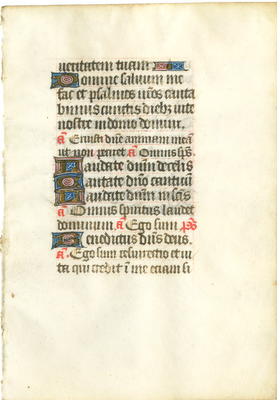 ueritatem tuam
Domine saluum me
fac et psalmos nr̄os canta
bimus cunctis dieb; uite
nostre in domo domini.
a. Eruisti dn̄e animam meā
ut non periret a. Omnis sp̄s.
Laudate dn̄m de celis
Cantate dn̄o canticū
Laudate dn̄m in sc̄is
a. Omnis spiritus laudet
dominum a. Ego sum p̄s
Benedictus dn̄s deus.
a. Ego sum resurrectio et ui
ta qui credit ī me etiam si